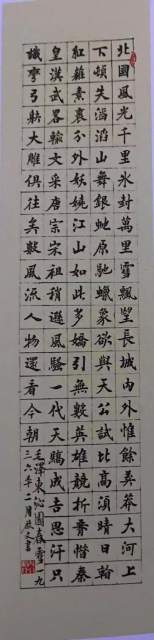 北國風光千里氷封萬里雪飄望長城內外惟餘莽莽大河上
下頓失滔滔山舞銀蛇原馳蠟象欲與天公試比高須晴日看
紅裝素裹分外妖嬈江山如此多嬌引無數英雄競折腰惜秦
皇漢武略輸文采唐宗宋祖稍遜風騷一代天驕成吉思汗只
識彎弓射大雕俱往矣數風流人物還看今朝
毛澤東沁園春雪一九
三六年二月文書